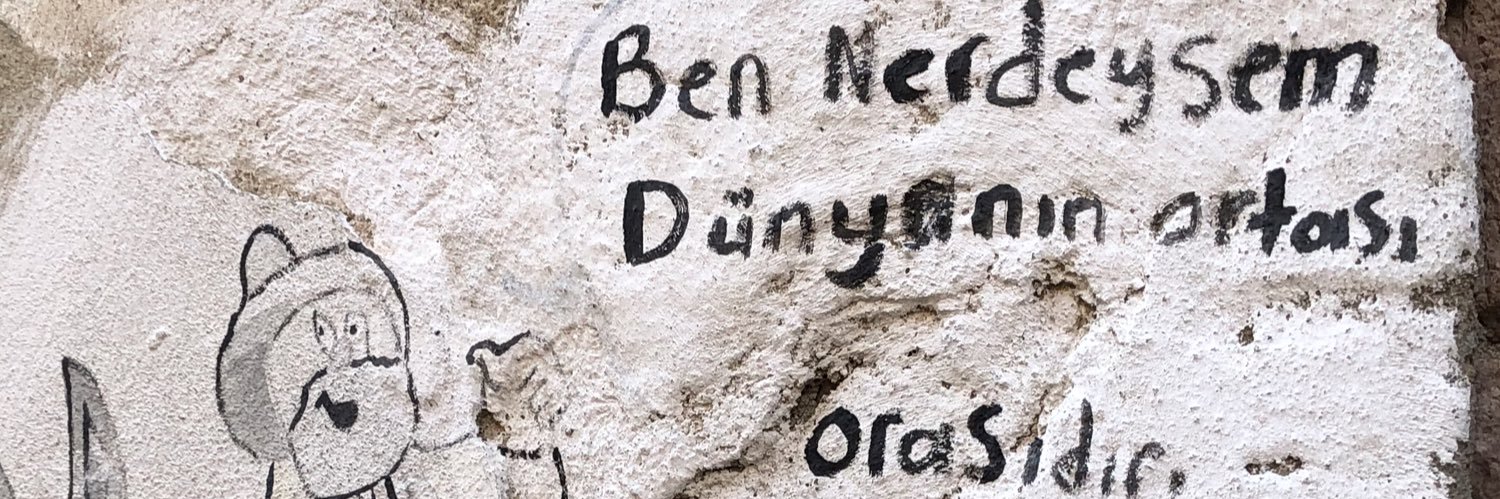 Ben Nerdeysem
Dünyanın ortası
orasıdır.